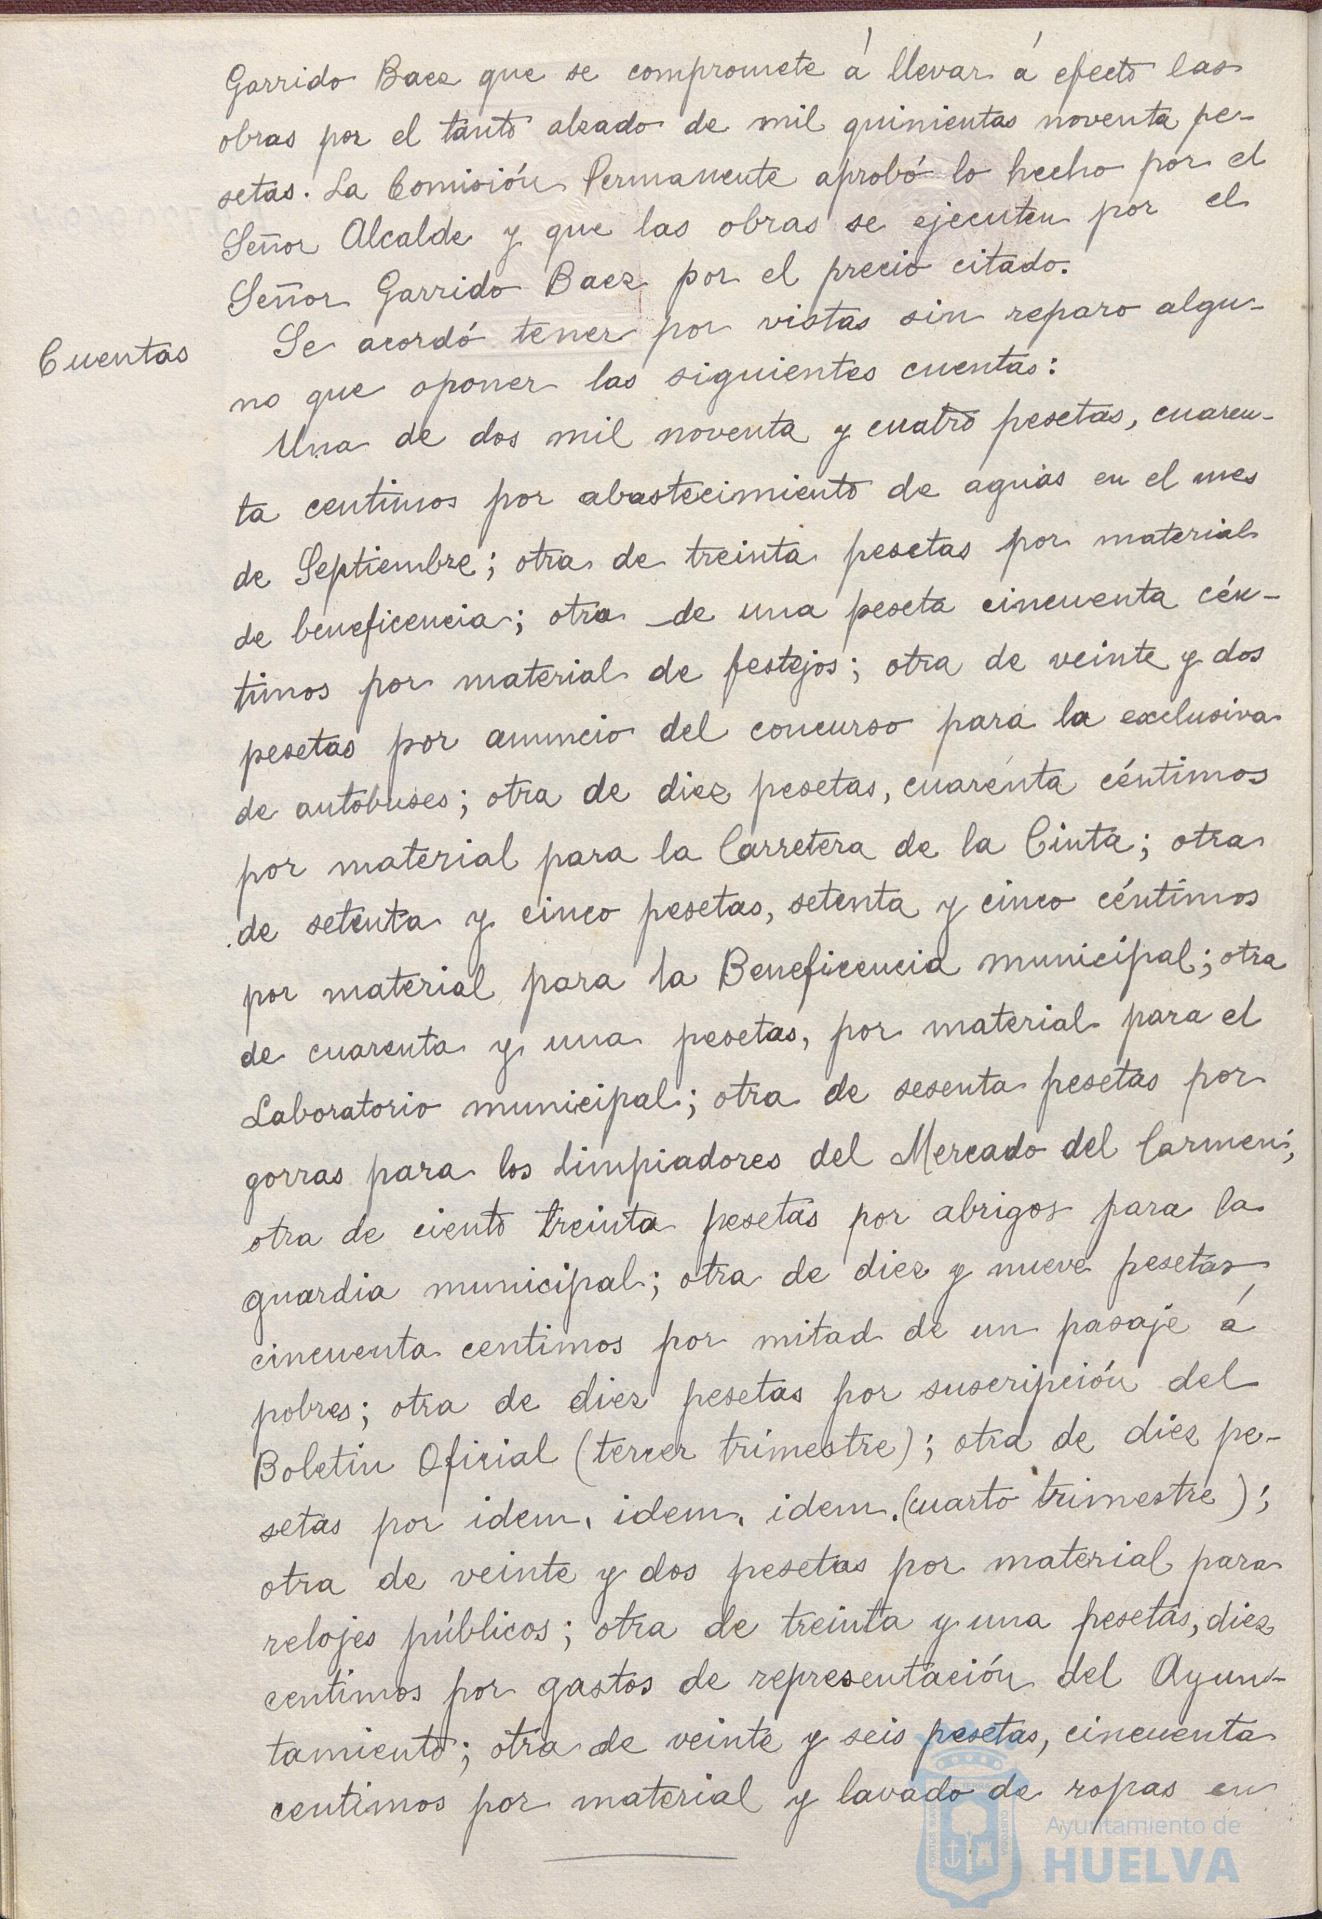 Garrido Baez que se compromete á llevar á efecto las
obras por el tanto alzado de mil quinientas noventa pe-
setas. La Comisión Permanente aprobó lo hecho por el
Señor Alcalde y que las obras se ejecuten por el
Señor Garrido Baez por el precio citado.
Cuentas
Se acordó tener por vistas sin reparo algu-
no que oponer las siguientes cuentas:
Una de dos mil noventa y cuatro pesetas, cuaren-
ta centimos por abastecimiento de aguas en el mes
de Septiembre; otra de treinta pesetas por material
de beneficencia; otra de una peseta cincuenta cén-
timos por material de festejos; otra de veinte y dos
pesetas por anuncio del concurso para la exclusiva
de autobuses; otra de diez pesetas, cuarenta céntimos
por material para la Carretera de la Cinta; otra
de setenta y cinco pesetas, setenta y cinco céntimos
por material para la Beneficencia municipal; otra
de cuarenta y una pesetas, por material para el
Laboratorio municipal; otra de sesenta pesetas por
gorras para los limpiadores del Mercado del Carmen;
otra de ciento treinta pesetas por abrigos para la
guardia municipal; otra de diez y nueve pesetas,
cincuenta centimos por mitad de un pasaje á
pobres; otra de diez pesetas por suscripción del
Boletin Oficial (tercer trimestre); otra de diez pe-
setas por idem, idem, idem. (cuarto trimestre);
otra de veinte y dos pesetas por material para
relojes públicos; otra de treinta y una pesetas, diez
centimos por gastos de representación del Ayun-
tamiento; otra de veinte y seis pesetas, cincuenta
centimos por material y lavado de ropas en
Ayuntamiento de
HUELVA